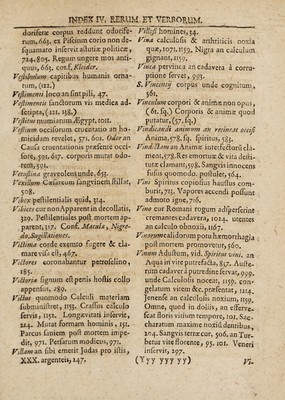 INDEX IV. RERUM ET VERBORUM.
dorifera corpus reddunt odorife-
rum, 663. ex Piscium corio non de-
squamato inservit astutiæ politicæ,
724. 805. Regum ungere mos anti-
quus, 661. conf. Kleider.
Vestibulum capitibus humanis orna-
tum, (112.)
Vestimenti loco an sint pili, 47.
Vestimentis sanctorum vis medica ad-
scripta, (111. 158.)
Vestitus mumiarum Ægypt, 1011.
Vestium occisorum cruentatio an ho-
micidam revelet, 571. 601. Odor an
Causa cruentationis præsente occi-
sore, 595. 617. corporis mutat odo-
rem, 501.
Vetustina graveolens unde, 651.
Vexillum Cæsareum sanguinem stillat,
508.
Vibex pestilentialis quid, 314.
Vibices cur non Apparent in decollatis,
319. Pestilentiales post mortem ap-
parent, 317. Conf. Macula, Nigre-
do, Sugillationes.
Victima corde exemto fugere & cla-
mare visa est, 467.
Victores coronabantur petroselino,
185.
Victoria signum est pernis hostis collo
appensus, 789.
Victus quomodo Calculi materiam
subministret, 1153. Crassus calculo
servit, 1151. Longævitati inservit,
214. Mutat formam hominis, 151.
Parcus saniem post mortem impe-
dit, 971. Persarum modicus, 971.
Vitam an sibi emerit Judas pro istis,
XXX. argenteis, 247.
Villosi homines, 34.
Vina calculosis & arthriticis noxia
quæ, 1071. 1159. Nigra an calculum
gignant, 1159.
Vinca pervinca an cadavera à corru-
ptione servet, 993.
S. Vincentij corpus unde cognitum,
561.
Vinculum corpori & animæ non opus,
(61. sq.) Corporis & animæ quod
putatur, (57. sq.)
Vindicandi animum an retineat occisi
Anima, 578. sq. Spiritus, 583.
Vindictam an Animæ interfectorū cla-
ment, 578. Res emortuæ & vita desti-
tutæ clament, 598. Sanguis innocens
fusus quomodo postulet, 564.
Vini Spiritus copiosius haustus com-
burit, 725. Vapores accendi possunt
admoto igne, 716.
Vino cur Romani rogum adjiciserint
cremantes cadavera, 1024. utentes
an calculo obnoxii, 1167.
Vinorum calidorum potu hæmorrhagia
post mortem promovetur, 560.
Vinum Adustum, vid. Spiritus vini, an
Aqua in vite putrefacta, 857. Auste-
rum cadaver à putredine servat, 999.
unde Calculosis noceat, 1159. con-
gelatum vitem &c. præsentat, 1224.
Jenense an calculosis noxium, 1159.
Omne, quod in doliis, an effervê-
scat floris vitium tempore, 101. Sac-
charatum maxime noxiū dentibus,
204. Sangvis terræ cur, 506. an Tur-
betur vite florente, 95. 101. Veneri
inservit, 297.
(Yyy yyy yy)